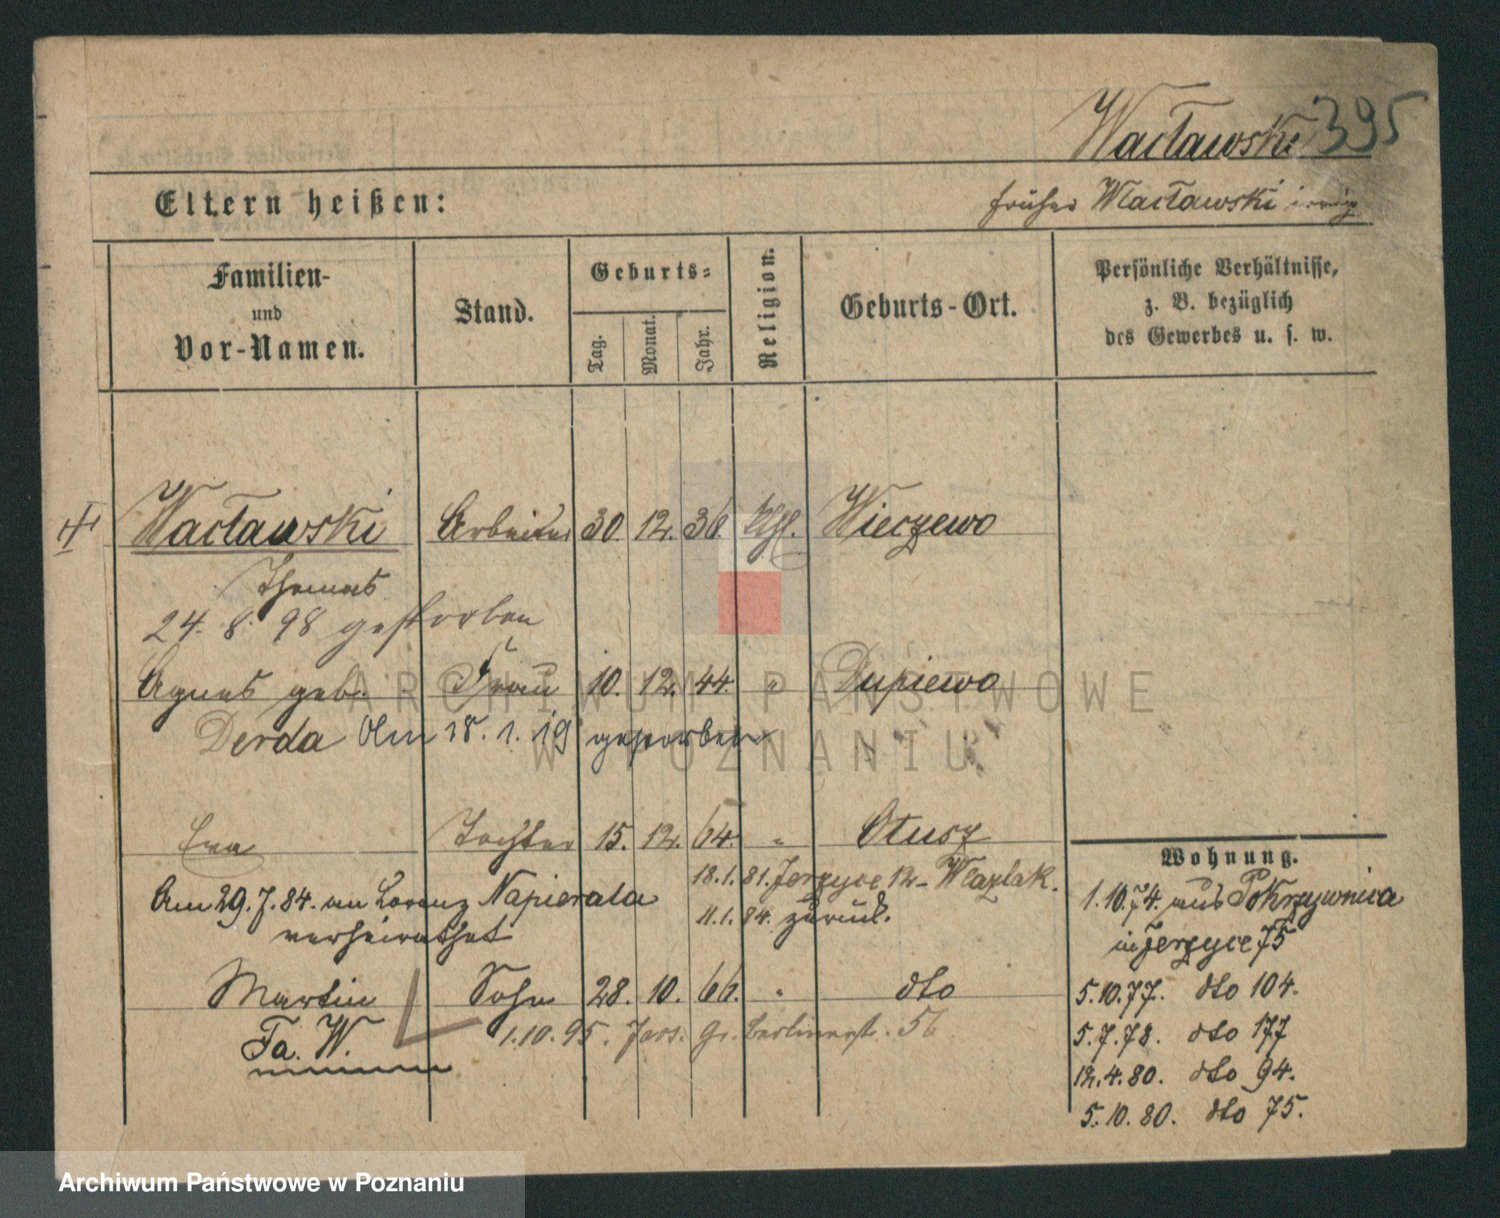 Wacławski 395
Eltern heißen:
früher Wlacławski irrig
Familien-
und
Vor-Namen.
Stand.
Geburts-
Tag.
Monat.
Jahr.
Religion.
Geburts-Ort.
Persönliche Verhältnisse,
z. B. bezüglich
des Gewerbes u. s. w.
Wacławski Arbeiter 30. 12. 36. kthl. Wieczewo
Thomas
24. 8. 98 gestorben
Agnes geb. Frau 10. 12. 44. " Dupiewo
Derda Am 18. 1. 19 gestorben
Eva Tochter 15. 12. 64. " Otusz
18.1.81. Jerzyce 12 Wlazlak.
Am 29.7.84. an Lorenz Napierala
11.1.84. zurück.
verheirathet
Martin Sohn 28. 10. 66. " dto
Fa. W.
1.10.95. Jers. Gr. Berlinerstr. 56
Wohnung.
1.10.74. aus Pokrzywnica
in Jerzyce 75
5.10.77. dto 104.
5.7.78. dto 177
12.4.80. dto 94.
5.10.80. dto 75.
ARCHIWUM PAŃSTWOWE
W POZNANIU
Archiwum Państwowe w Poznaniu